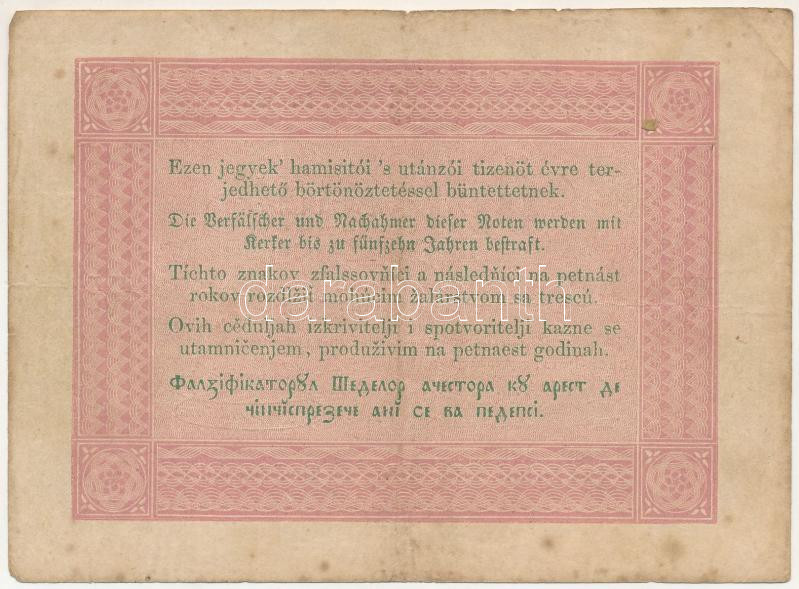 Ezen jegyek' hamisitói 's utánzói tizenöt évre ter-
jedhető börtönöztetéssel büntettetnek.
Die Verfälscher und Nachahmer dieser Noten werden mit
Kerker bis zu fünfzehn Jahren bestraft.
Tíchto znakov zfalssovňíci a následňíci na petnást
rokov rozdlžit mohúcim žalarstvom sa trescú.
darabanth
Ovih cěduljah izkrivitelji i spotvoritelji kazne se
utamničenjem, produživim na petnaest godinah.
Фалзіфікаторꙋл Шеделор ачестора кꙋ арест де
чінчіспрезече ані се ва педепсі.